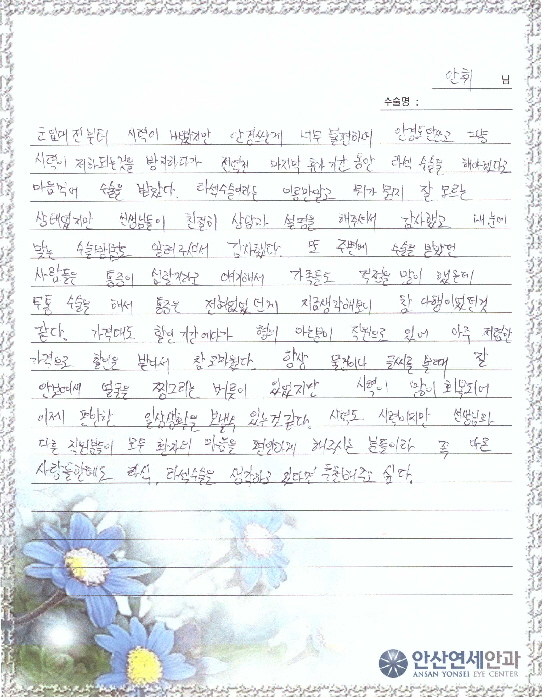 안휘 님
수술명 :
전부터 시력이 나빴지만 안경쓰는게 너무 불편해서 안경도 안쓰고 그냥
시력이 저하되는것을 방치하다가 전역전 마지막 휴가 기간 동안 라섹 수술을 해야겠다고
마음먹어 수술을 받았다. 라섹수술이라는 이름만알고 뭐가 뭔지 잘 모르는
상태였지만 선생님들이 친절히 상담과 설명을 해주셔서 감사했고 내 눈에
맞는 수술방법도 알려주셔서 감사했다. 또 주변에 수술을 받았던
사람들은 통증이 심할거라고 얘기해서 가족들도 걱정을 많이 했는데
무통 수술을 해서 통증은 전혀없었던게 지금생각해보니 참 다행이었던것
같다. 가격대도 할인 기간에다가 형이 아는분이 직원으로 있어 아주 저렴한
가격으로 할인을 받아서 참 고마웠다. 항상 물건이나 글씨를 볼때 잘
안보여서 얼굴을 찡그리는 버릇이 있었지만 시력이 많이 회복되어
이제 편안한 일상생활을 보낼수 있는것같다. 시력도 시력이지만 선생님과
다른 직원분들이 모두 환자의 마음을 편안하게 해주시는 분들이라 꼭 다른
사람들한테도 라식, 라섹수술을 생각하고 있다면 추천해주고 싶다.
안산연세안과
ANSAN YONSEI EYE CENTER